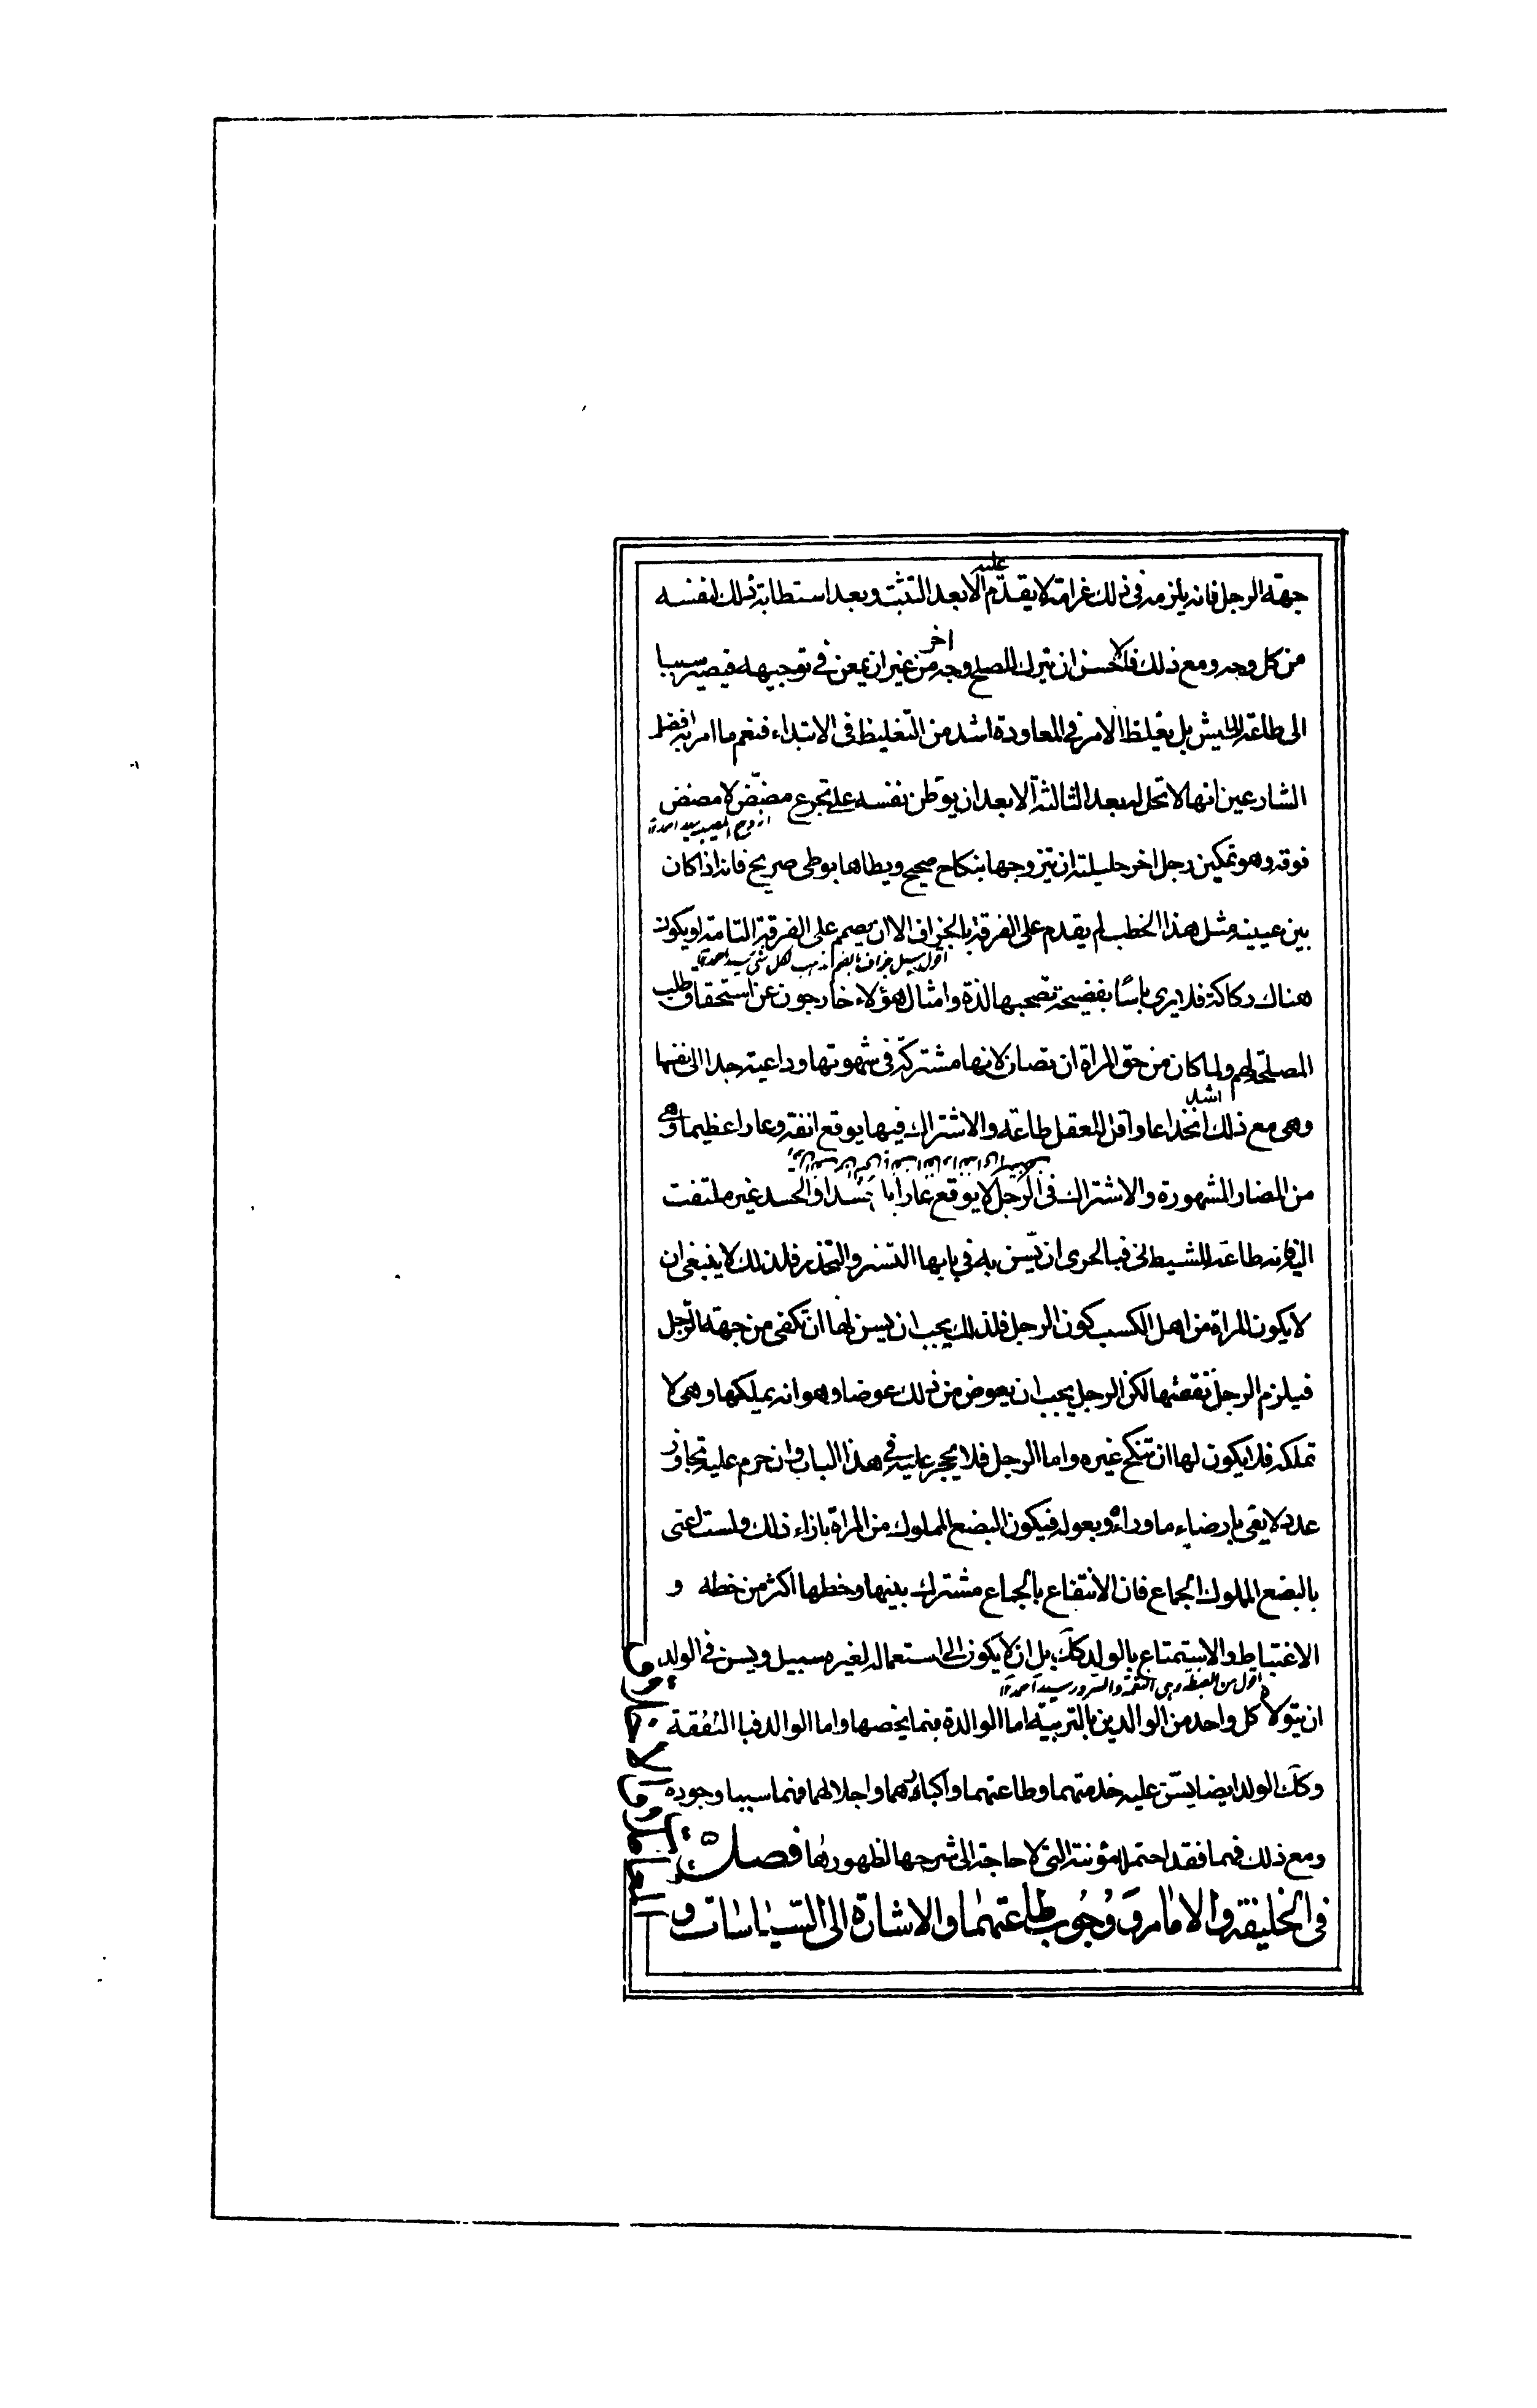 جهة الرجل فانه يلزمه فى ذلك غرامة لا يقدّم عليه الا بعد التثبت وبعد استطابة ذلك لنفسه
من كل وجه ومع ذلك فالاحسن ان يترك للصلح وجه اخر من غير ان يمعن فى توجيهه فيصير سببا
الى طاعة الطيش بل يغلظ الامر فى المعاودة اشد من التغليظ فى الابتداء فنعم ما امر به افضل
الشارعين انها لا تحل له بعد الثالثة الا بعد ان يوطن نفسه على تجرع مضض لا مضض
فوقه وهو تمكين رجل اخر حليلته ان يتزوجها بنكاح صحيح ويطاها بوطى صريح فانه اذا كان
بين عينيه مثل هذا الخطب لم يقدم على الفرقة بالجزاف الا ان يصمم على الفرقة التامة او يكون
هناك ركاكة فلا يرى باسًا بفضيحة تصحبها لذة وامثال هؤلاء خارجون عن استحقاق طلب
المصلحة لهم ولما كان من حق المراة ان تصان لانها مشتركة فى شهوتها وداعية جدا الى نفسها
وهى مع ذلك اشد انخداعا واقل للعقل طاعة والاشتراك فيها يوقع انفة وعارا عظيما وهى
من المضار المشهورة والاشتراك فى الرجل لا يوقع عارا بل حسدا والحسد غير ملتفت
اليه فانه طاعة للشيطان فبالحرى ان يسن به فى بابها التستر والتخذر فلذلك لا ينبغى ان
لا يكون المراة من اهل الكسب كون الرجل فلذلك يجب ان يسن لها ان تكفى من جهة الرّجل
فيلزم الرجل نفقتها لكن الرجل يجب ان يعوض من ذلك عوضا وهو انه يملكها وهى لا
تملكه فلا يكون لها ان تنكح غيره واما الرجل فلا يحجر عليه فى هذا الباب وان حرم عليه تجاوز
عدد لا يفى بارضاء ما وراءه وبعوله فيكون البضع المملوك من المراة بازاء ذلك ولست اعنى
بالبضع المملوك الجماع فان الانتفاع بالجماع مشترك بينهما وحظها اكثر من حظه و
الاغتباط والاستمتاع بالولد كك بل ان لا يكون الى استعمالها لغيره سبيل ويسن فى الولد
اقول من الغبطة وهى النعمة والسرور سيد احمد
ان يتولاه كل واحد من الوالدين بالتربية اما الوالدة فبما يخصها واما الوالد فبا النفقة
وكك الولد ايضا يسن عليه خدمتهما وطاعتهما واكبارهما واجلالهما فهما سببا وجوده
ومع ذلك فهما فقد احتملا مؤنته التى لا حاجة الى شرحها لظهورها فصل
فى الخليفة والامام ووجوب طاعتهما والاشارة الى السياسات و